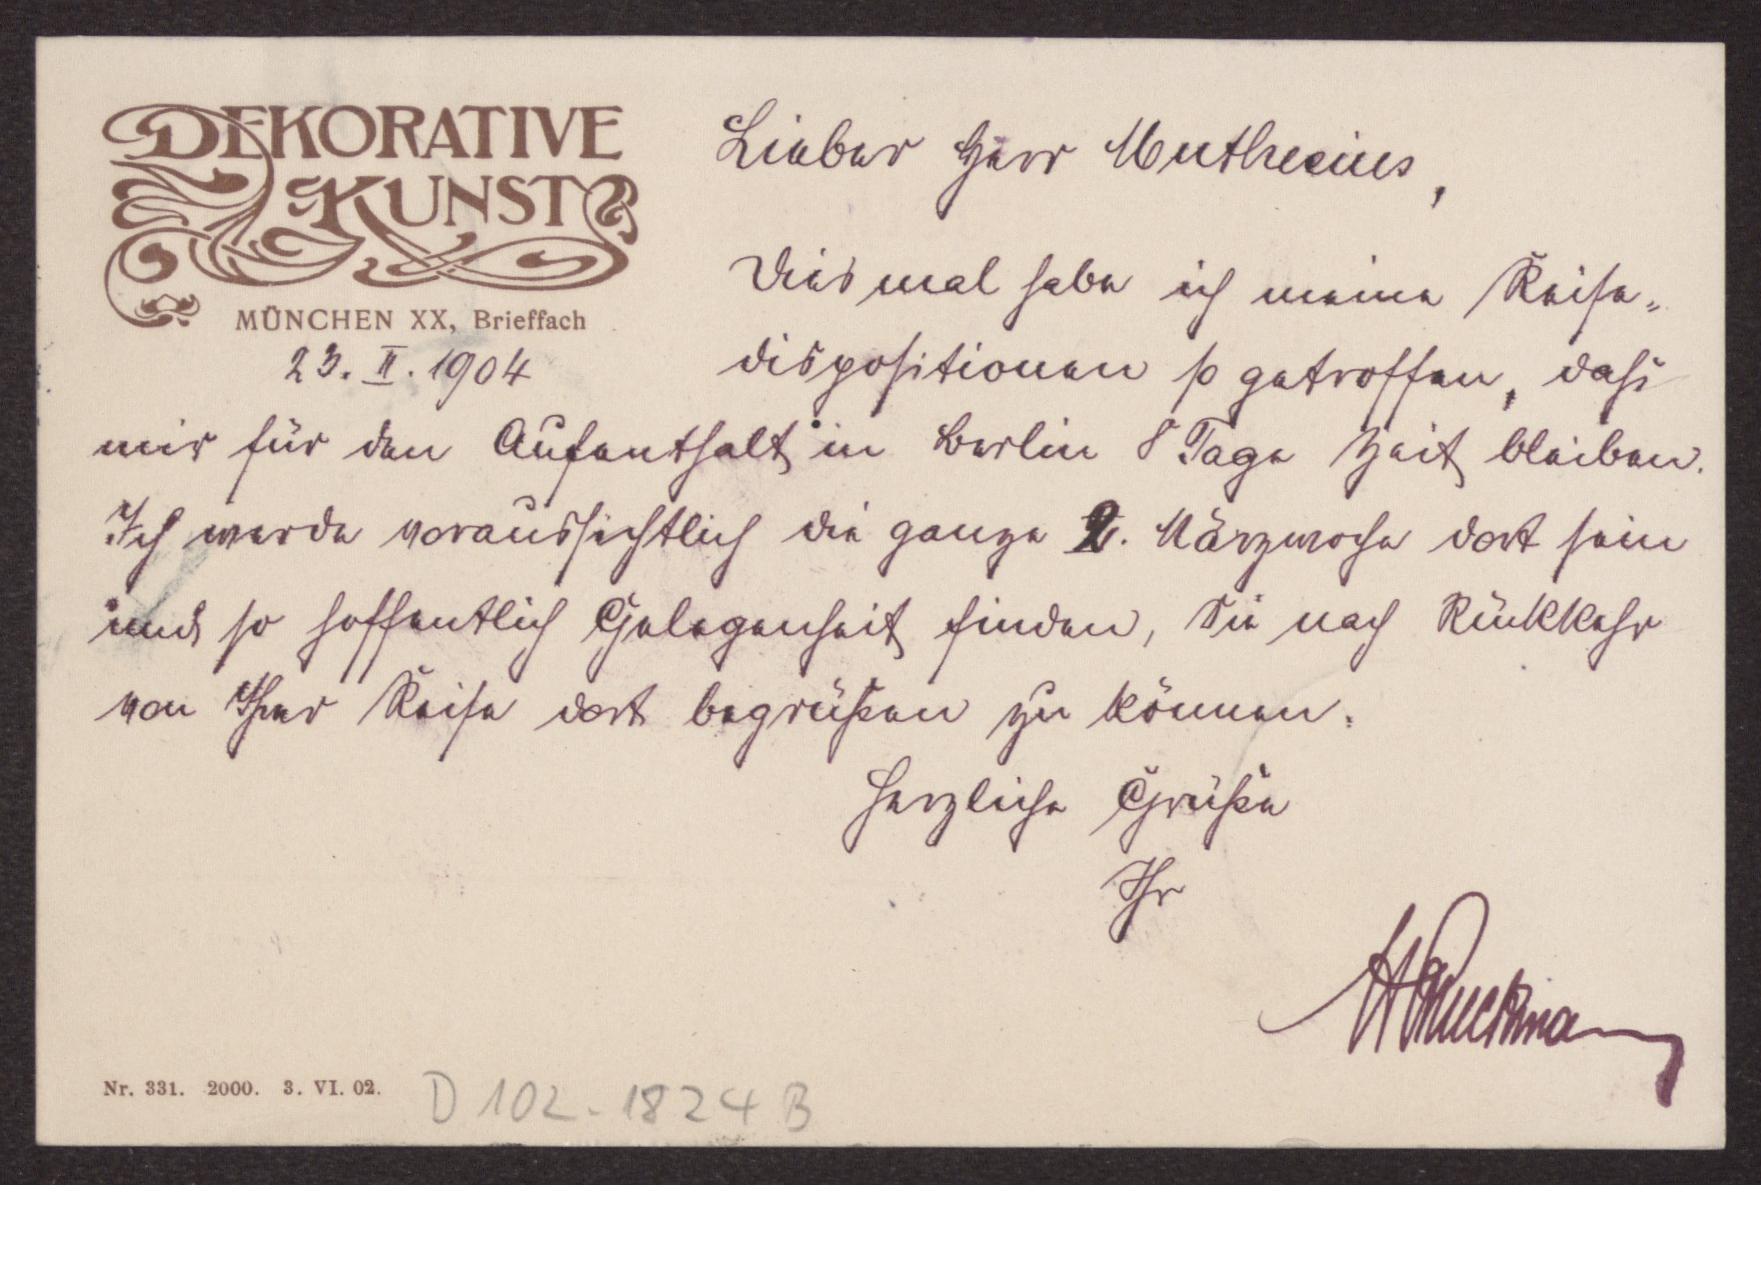 DEKORATIVE
KUNST
MÜNCHEN XX, Brieffach
23. II. 1904
Lieber Herr Muthesius,
Diesmal habe ich meine Reise-
dispositionen so getroffen, dass
mir für den Aufenthalt in Berlin 8 Tage Zeit bleiben.
Ich werde voraussichtlich die ganze 2. Märzwoche dort sein
und so hoffentlich Gelegenheit finden, Sie nach Rückkehr
von Ihrer Reise dort begrüßen zu können.
Herzliche Grüße
Ihr
HBruckmann
Nr. 331. 2000. 3. VI. 02.
D 102-1824 B